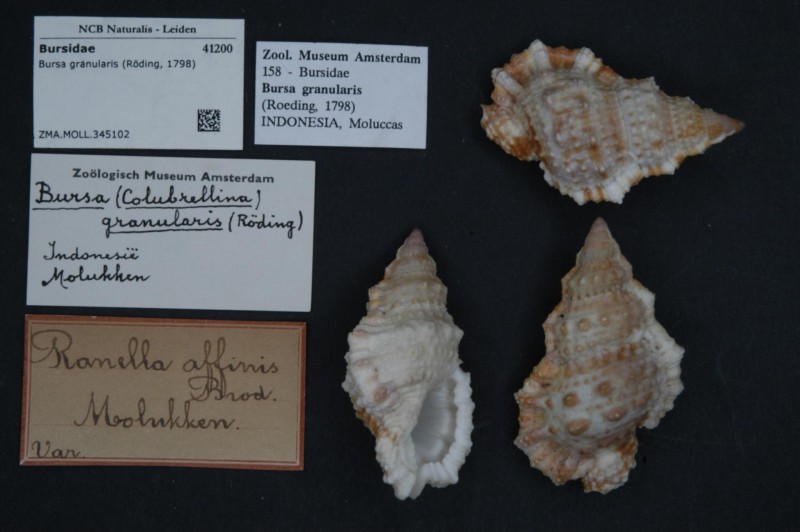 NCB Naturalis - Leiden
Bursidae 41200
Bursa granularis (Röding, 1798)
ZMA.MOLL.345102
Zool. Museum Amsterdam
158 - Bursidae
Bursa granularis
(Roeding, 1798)
INDONESIA, Moluccas
Zoölogisch Museum Amsterdam
Bursa (Colubrellina)
granularis (Röding)
Indonesië
Molukken
Ranella affinis
Brod.
Molukken.
Var.